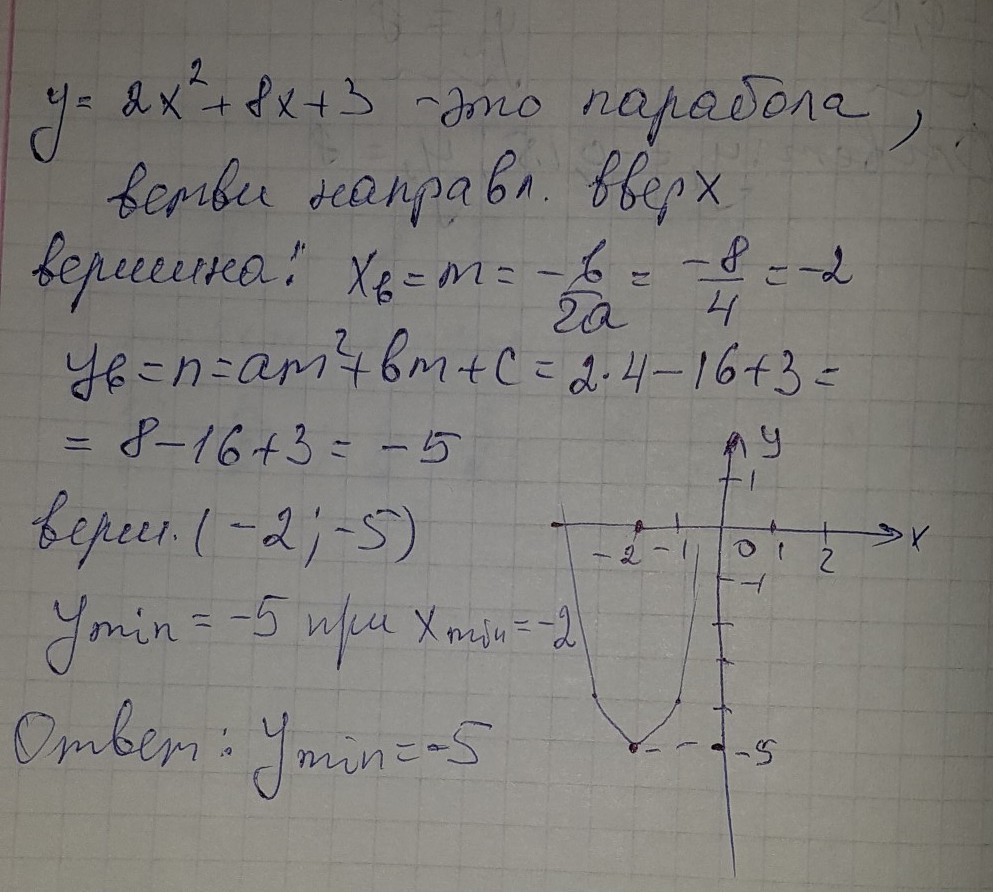 y = 2x² + 8x + 3 - это парабола,
ветви направл. вверх
вершина: xв = m = -в/2a = -8/4 = -2
yв = n = am² + вm + c = 2·4 - 16 + 3 =
= 8 - 16 + 3 = -5
верш. (-2; -5)
ymin = -5 при xmin = -2
Ответ: ymin = -5
y
1
-2 -1 0 1 2 x
-1
-5